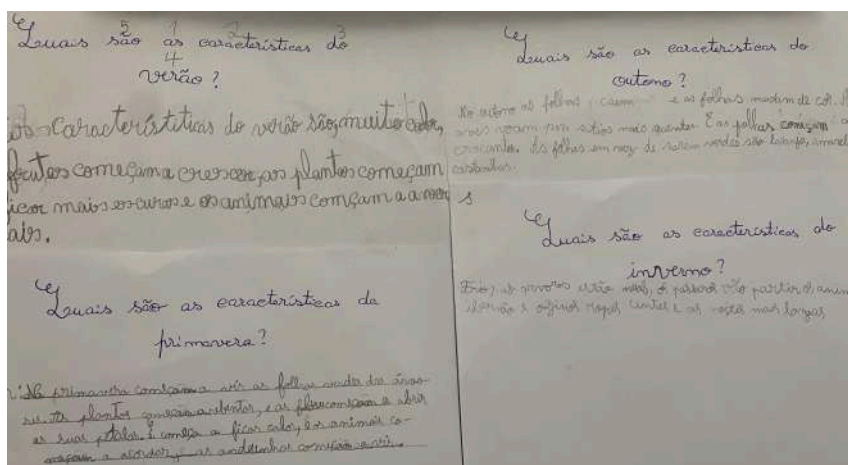 5 1 2 3
Quais são as características do
4
verão?
as características do verão são, muito calor,
frutos começam a crescer, as plantas começam
ficar mais escuras e os animais começam a
ais.
Quais são as características da
primavera?
Na primavera começam a vir as folhas verdes das árvo-
res. As plantas começam a rebentar, e as flores começam a abrir
as suas pétalas. E começa a ficar calor, e os animais co-
meçam a acordar, e as andorinhas começam a vir.
Quais são as características do
outono?
No outono as folhas caem e as folhas mudam de cor. A
aves voam para sítios mais quentes. E as folhas começam a
crocantes. As folhas em vez de serem verdes são laranja, amarel
castanhas.
Quais são as características do
inverno?
Frio, as árvores estão nuas, os pássaros vão partir os anim
roupas e as noites mais longas